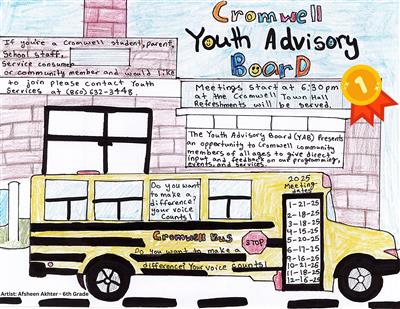 Cromwell
Youth Advisory
Board
If you're a Cromwell student, parent,
School staff,
Service consumer
or community member and would like
to join please contact Youth
Services at (860) 632-3448.
Meetings start at 6:30pm
at the Cromwell Town Hall
Refreshments will be served.
1
The Youth Advisory Board (YAB) Presents
an opportunity to Cromwell community
members of all ages to give direct
input and feedback on our programming,
events, and services.
Do you want
to make a
difference?
your voice
counts!
2025
Meeting
dates
1-21-25
2-18-25
3-18-25
4-15-25
5-20-25
6-17-25
9-16-25
10-21-25
11-18-25
12-16-25
Cromwell Bus
STOP
Do you want to make a
difference? Your voice counts!
Artist: Afsheen Akhter - 6th Grade